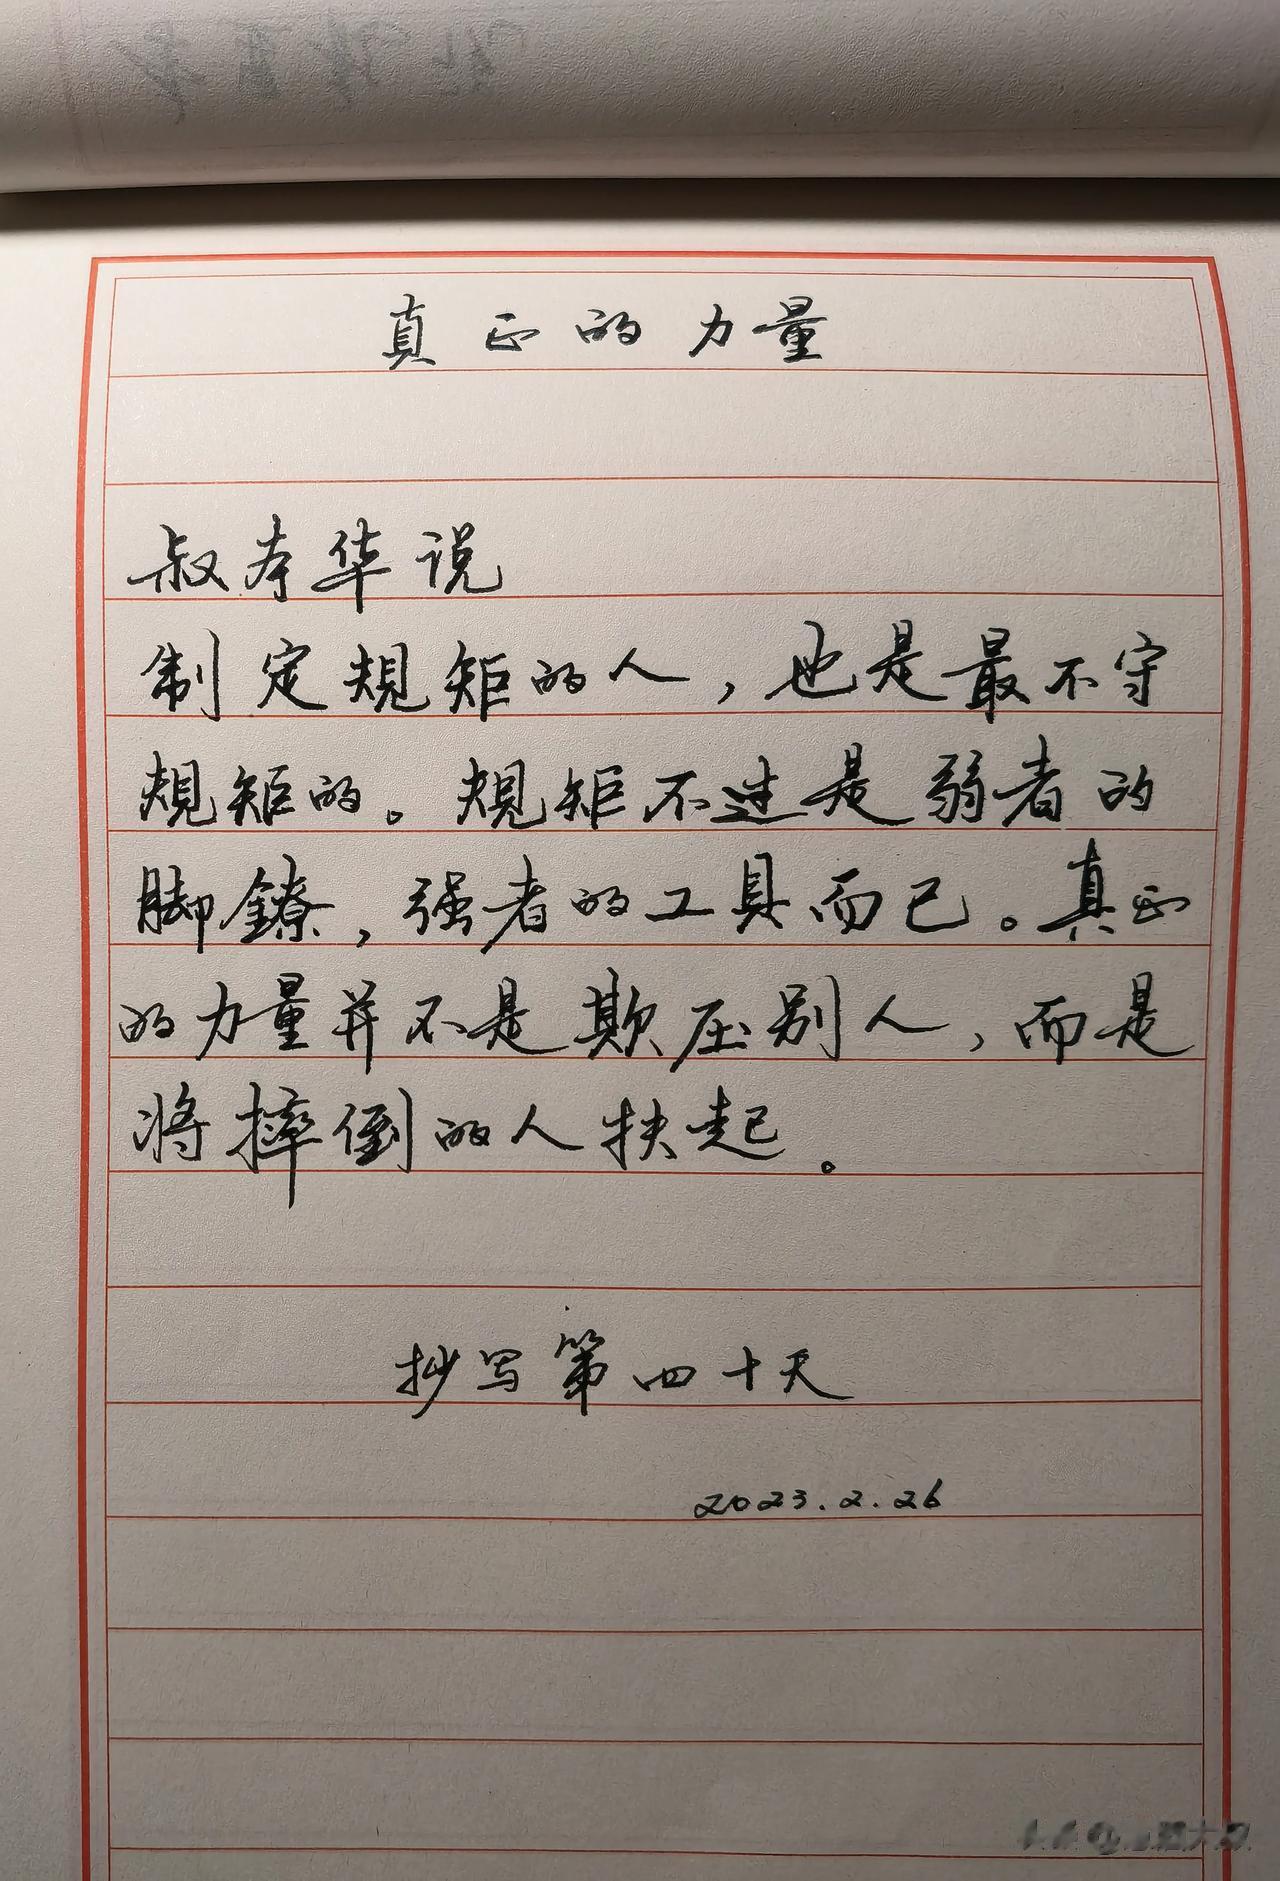 真正的力量
叔本华说
制定规矩的人，也是最不守
规矩的。规矩不过是弱者的
脚鐐，强者的工具而已。真正
的力量并不是欺压别人，而是
将摔倒的人扶起。
抄写第四十天
2023.2.26